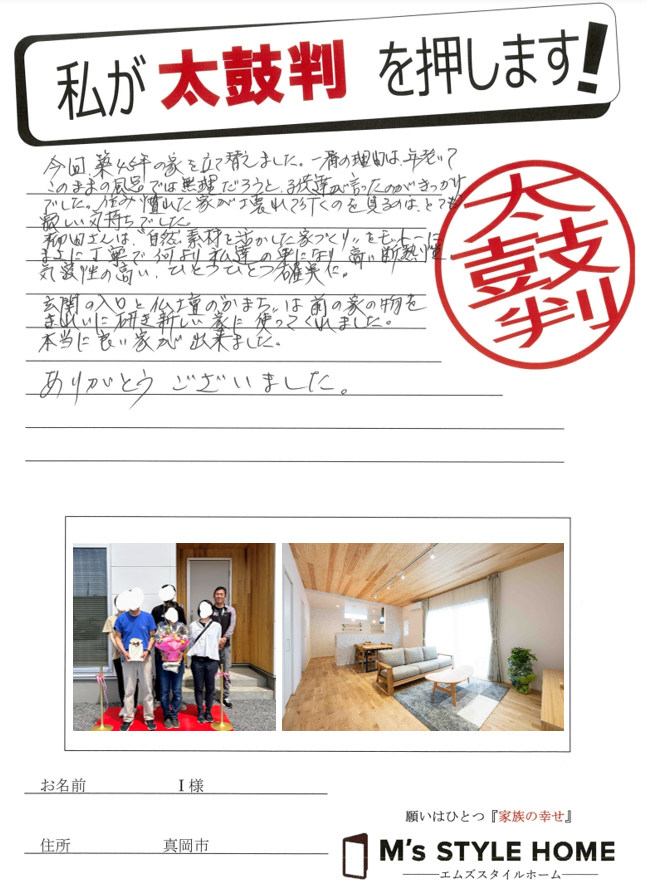 私が 太鼓判 を押します!
今回、築46年の家を立て替えました。一番の理由は、年老いて
このままの風呂では無理だろうと、子供達が言ったのがきっかけ
でした。住み慣れた家が壊れて行くのを見るのは、とても
寂しい気持ちでした。
柳田さんは、"自然素材を活かした家づくり"をモットーに
まさに丁寧で何より私達の身になり 高い断熱性
気密性の高い、ひとつひとつ確実に。
玄関の入口と仏壇の"かまち"は前の家の物を
きれいに研き新しい家に使ってくれました。
本当に良い家が出来ました。
ありがとうございました。
太鼓判
お名前 I 様
住所 真岡市
願いはひとつ『家族の幸せ』
M's STYLE HOME
エムズスタイルホーム